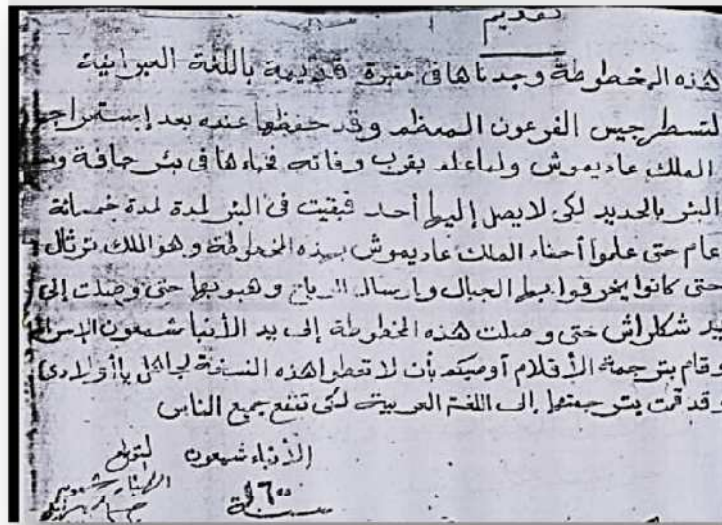 تقديم
هذه المخطوطة وجدناها في مقبرة قديمة باللغة العبرانية
لتسطرجيس الفرعون المنظم وقد حفظها عنده بعد إستمراجها
الملك عاديموش ولما علم بقرب وفاته فخباءها في بئر جافة
البئر بالحديد لكي لا يصل إليها أحد فبقيت في البئر لمدة لمدة خمسمائة
عام حتى علموا أحفاد الملك عاديموش بهذه المخطوطة وهو الملك نرثال
حتى كانوا يخرقوا بها الجبال وإرسال الرياح وهبوبها حتى وصلت إلى
يد شكلراش حتى وصلت هذه المخطوطة إلى يد الأنبا شمعون
وقام بترجمة الأقلام أوصيكم بأن لا تعطوا هذه النسخة لجاهل يا أولادي
وقد قمت بترجمتها إلى اللغة العربية لكي تنفع جميع الناس
الأنباء شمعون التوقيع
سنة